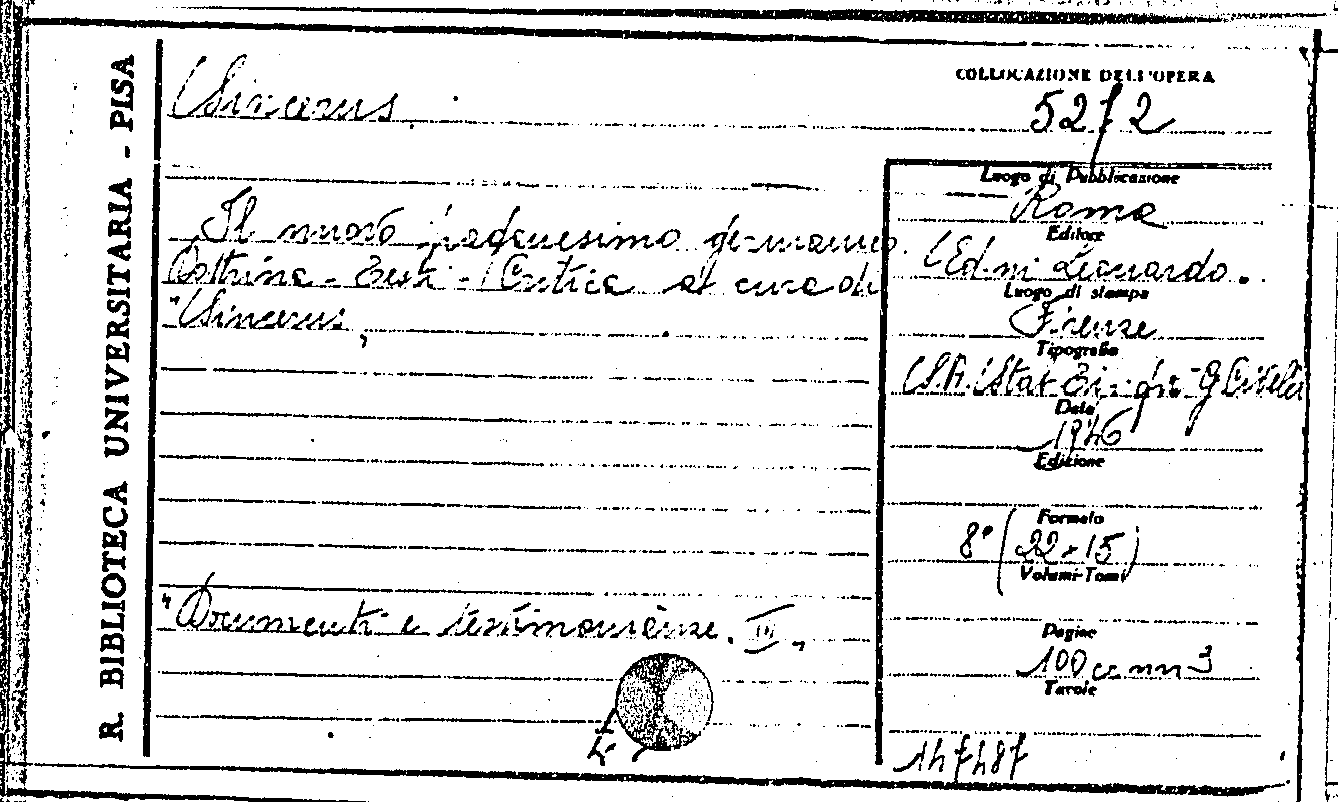 R. BIBLIOTECA UNIVERSITARIA - PISA
Sincerus.
COLLOCAZIONE DELL'OPERA
52 f 2
Il nuovo paganesimo germanico.
Dottrina - Testi - Critica a cura di
"Sincerus"
"Documenti e testimonianze. III"
Luogo di Pubblicazione
Roma
Editore
Ed.ni Leonardo.
Luogo di stampa
Firenze
Tipografia
S.A. Stab. G. Civelli
Data
1946
Edizione
Formato
8° (22 × 15)
Volumi-Tomi
Pagine
100 e nn 3
Tavole